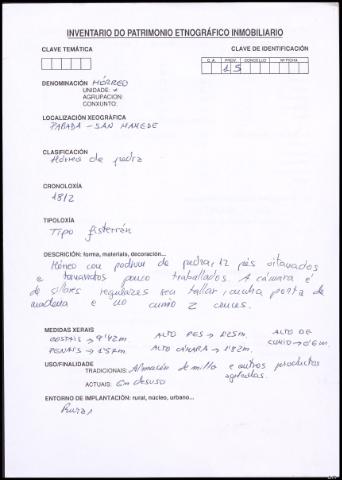 INVENTARIO DO PATRIMONIO ETNOGRÁFICO INMOBILIARIO
CLAVE TEMÁTICA CLAVE DE IDENTIFICACIÓN
C.A. PROV. CONCELLO Nº FICHA
1 5
DENOMINACIÓN HÓRREO
UNIDADE: x
AGRUPACIÓN:
CONXUNTO:
LOCALIZACIÓN XEOGRÁFICA
PARADA - SAN MAMEDE
CLASIFICACIÓN
Hórreo de pedra
CRONOLOXÍA
1812
TIPOLOXÍA
Tipo fisterrán
DESCRICIÓN: forma, materiais, decoración...
Hórreo con podium de pedra, 12 pés
e tornarratos pouco traballados. A cámara é
de sillares regulares sen tallar, cunha porta de
madeira e no cumio 2 cruces.
MEDIDAS XERAIS
COSTAIS → 9'42m. ALTO PES → 1'25m. ALTO DE
PENAIS → 1'57m. ALTO CÁMARA → 1'82m. CUMIO → 0'6m.
USO/FINALIDADE
TRADICIONAIS: Almacén de millo e outros productos
agrícolas.
ACTUAIS: En desuso
ENTORNO DE IMPLANTACIÓN: rural, núcleo, urbano...
Rural